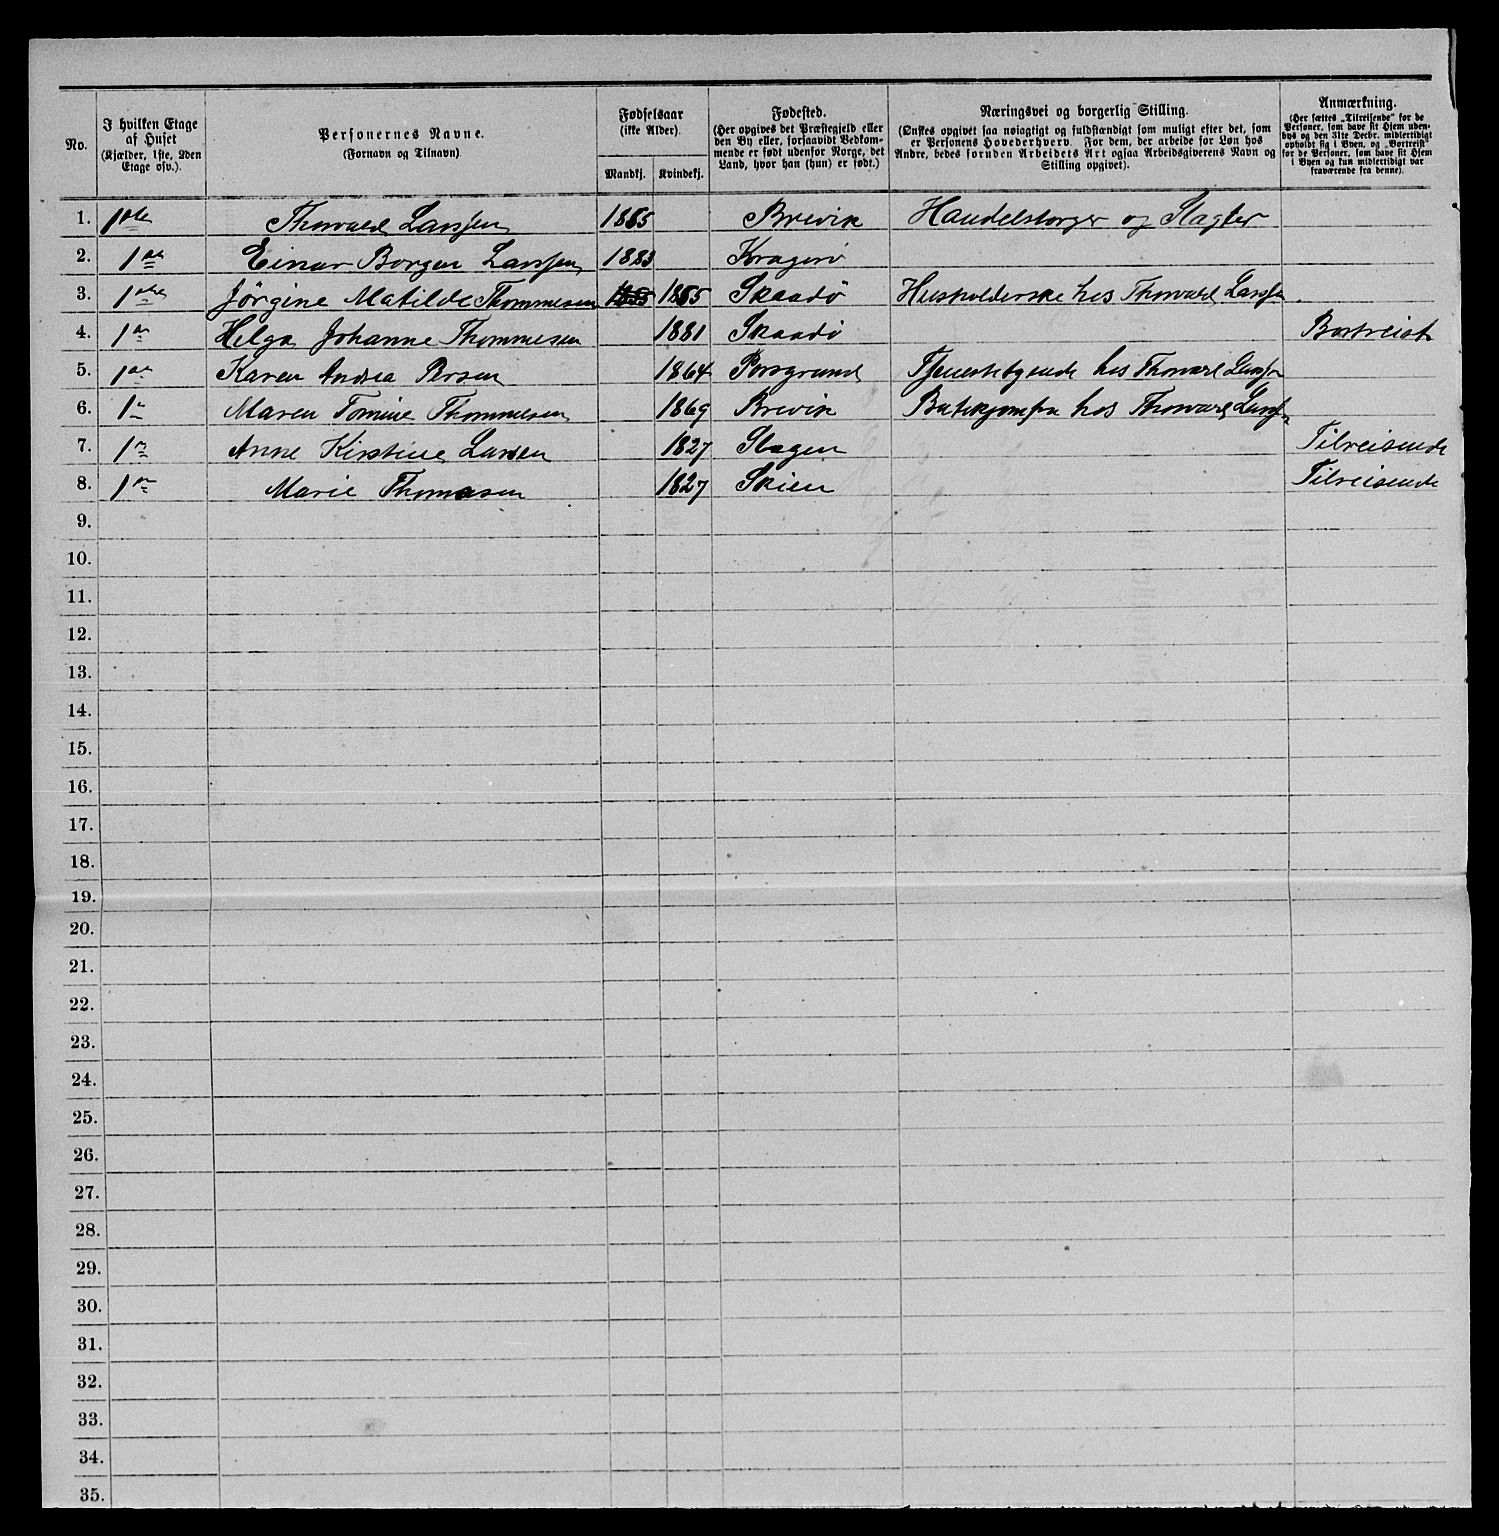 No.
I hvilken Etage
af Huset
(Kjælder, 1ste, 2den
Etage osv.).
Personernes Navne.
(Fornavn og Tilnavn)
Fødselsaar
(ikke Alder).
Mandkj. Kvindekj.
Fødested.
(Her opgives det Præstegjeld eller
den By eller, forsaavidt Vedkom-
mende er født udenfor Norge, det
Land, hvor han (hun) er født.)
Næringsvei og borgerlig Stilling.
(Ønskes opgivet saa nøiagtigt og fuldstændigt som muligt efter det, som
er Personens Hovederhverv. For dem, der arbeide for Løn hos
Andre, bedes foruden Arbeidets Art ogsaa Arbeidsgiverens Navn og
Stilling opgivet).
Anmærkning.
(Her sættes „Tilreisende" for de
Personer, som have sit Hjem uden-
bys og den 31te Decbr. midlertidigt
opholdt sig i Byen, og „Bortreist"
for de Personer, som have sit Hjem
i Byen og kun midlertidigt var
fraværende fra denne).
1. 1ste Thorvald Larssen 1865 Brevik Handelsborger og Slagter
2. 1ste Einar Borgen Larssen 1883 Kragerø
3. 1ste Jörgine Matilde Thommesen 1855 1855 Skaadö Husholderske hos Thorvald Larssen
4. 1 Helga Johanne Thommesen 1881 Skaadö Bortreist
5. 1 Karen Andrea Persen 1864 Porsgrund Tjenestetgende hos Thorvald Larssen
6. 1 Maren Tomine Thommesen 1869 Brevik Butikjomfru hos Thorvald Larssen
7. 1 Anne Kirstine Larsen 1827 Slagen Tilreisende
8. 1 Marie Thomasen 1827 Skien Tilreisende
9.
10.
11.
12.
13.
14.
15.
16.
17.
18.
19.
20.
21.
22.
23.
24.
25.
26.
27.
28.
29.
30.
31.
32.
33.
34.
35.